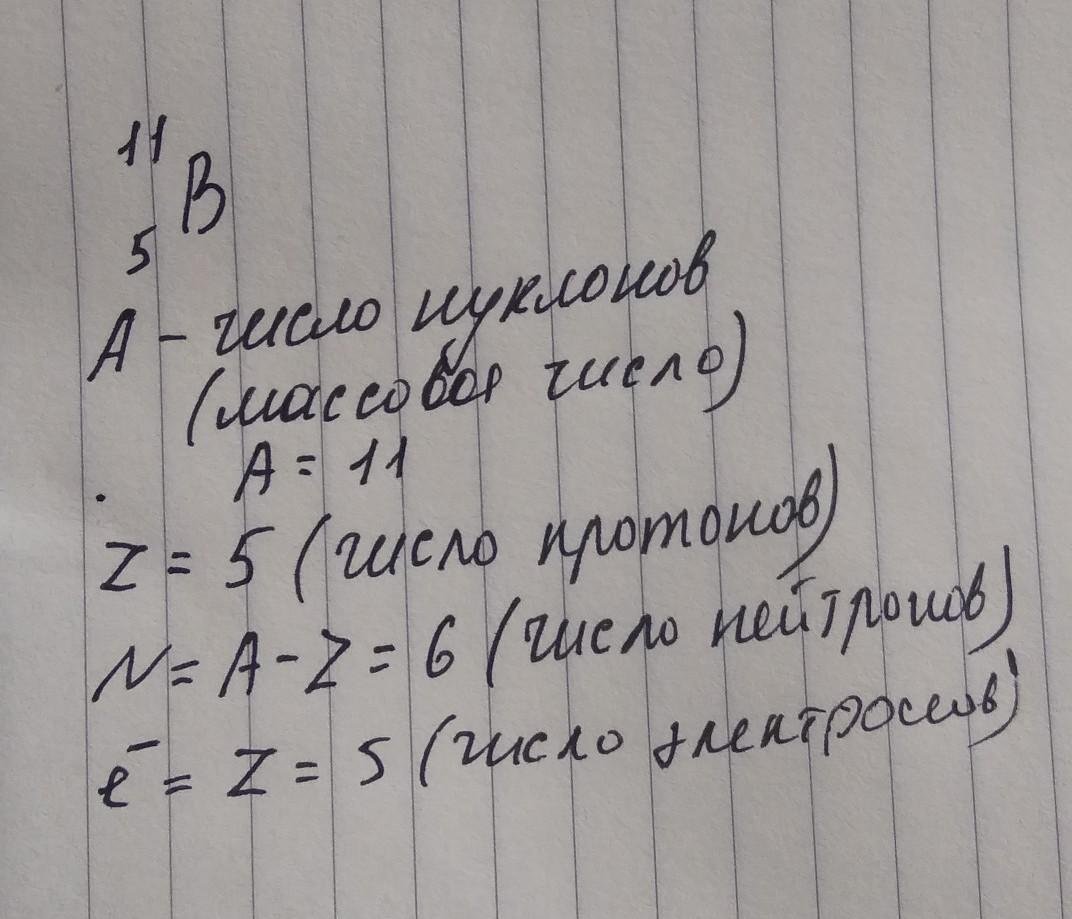 11
B
5
A - число нуклонов
(массовое число)
A = 11
Z = 5 (число протонов)
N = A - Z = 6 (число нейтронов)
e⁻ = Z = 5 (число электронов)